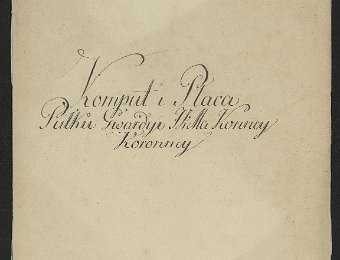 Komput i Płaca
Pułku Gwardyi JKMci Konney
Koronney